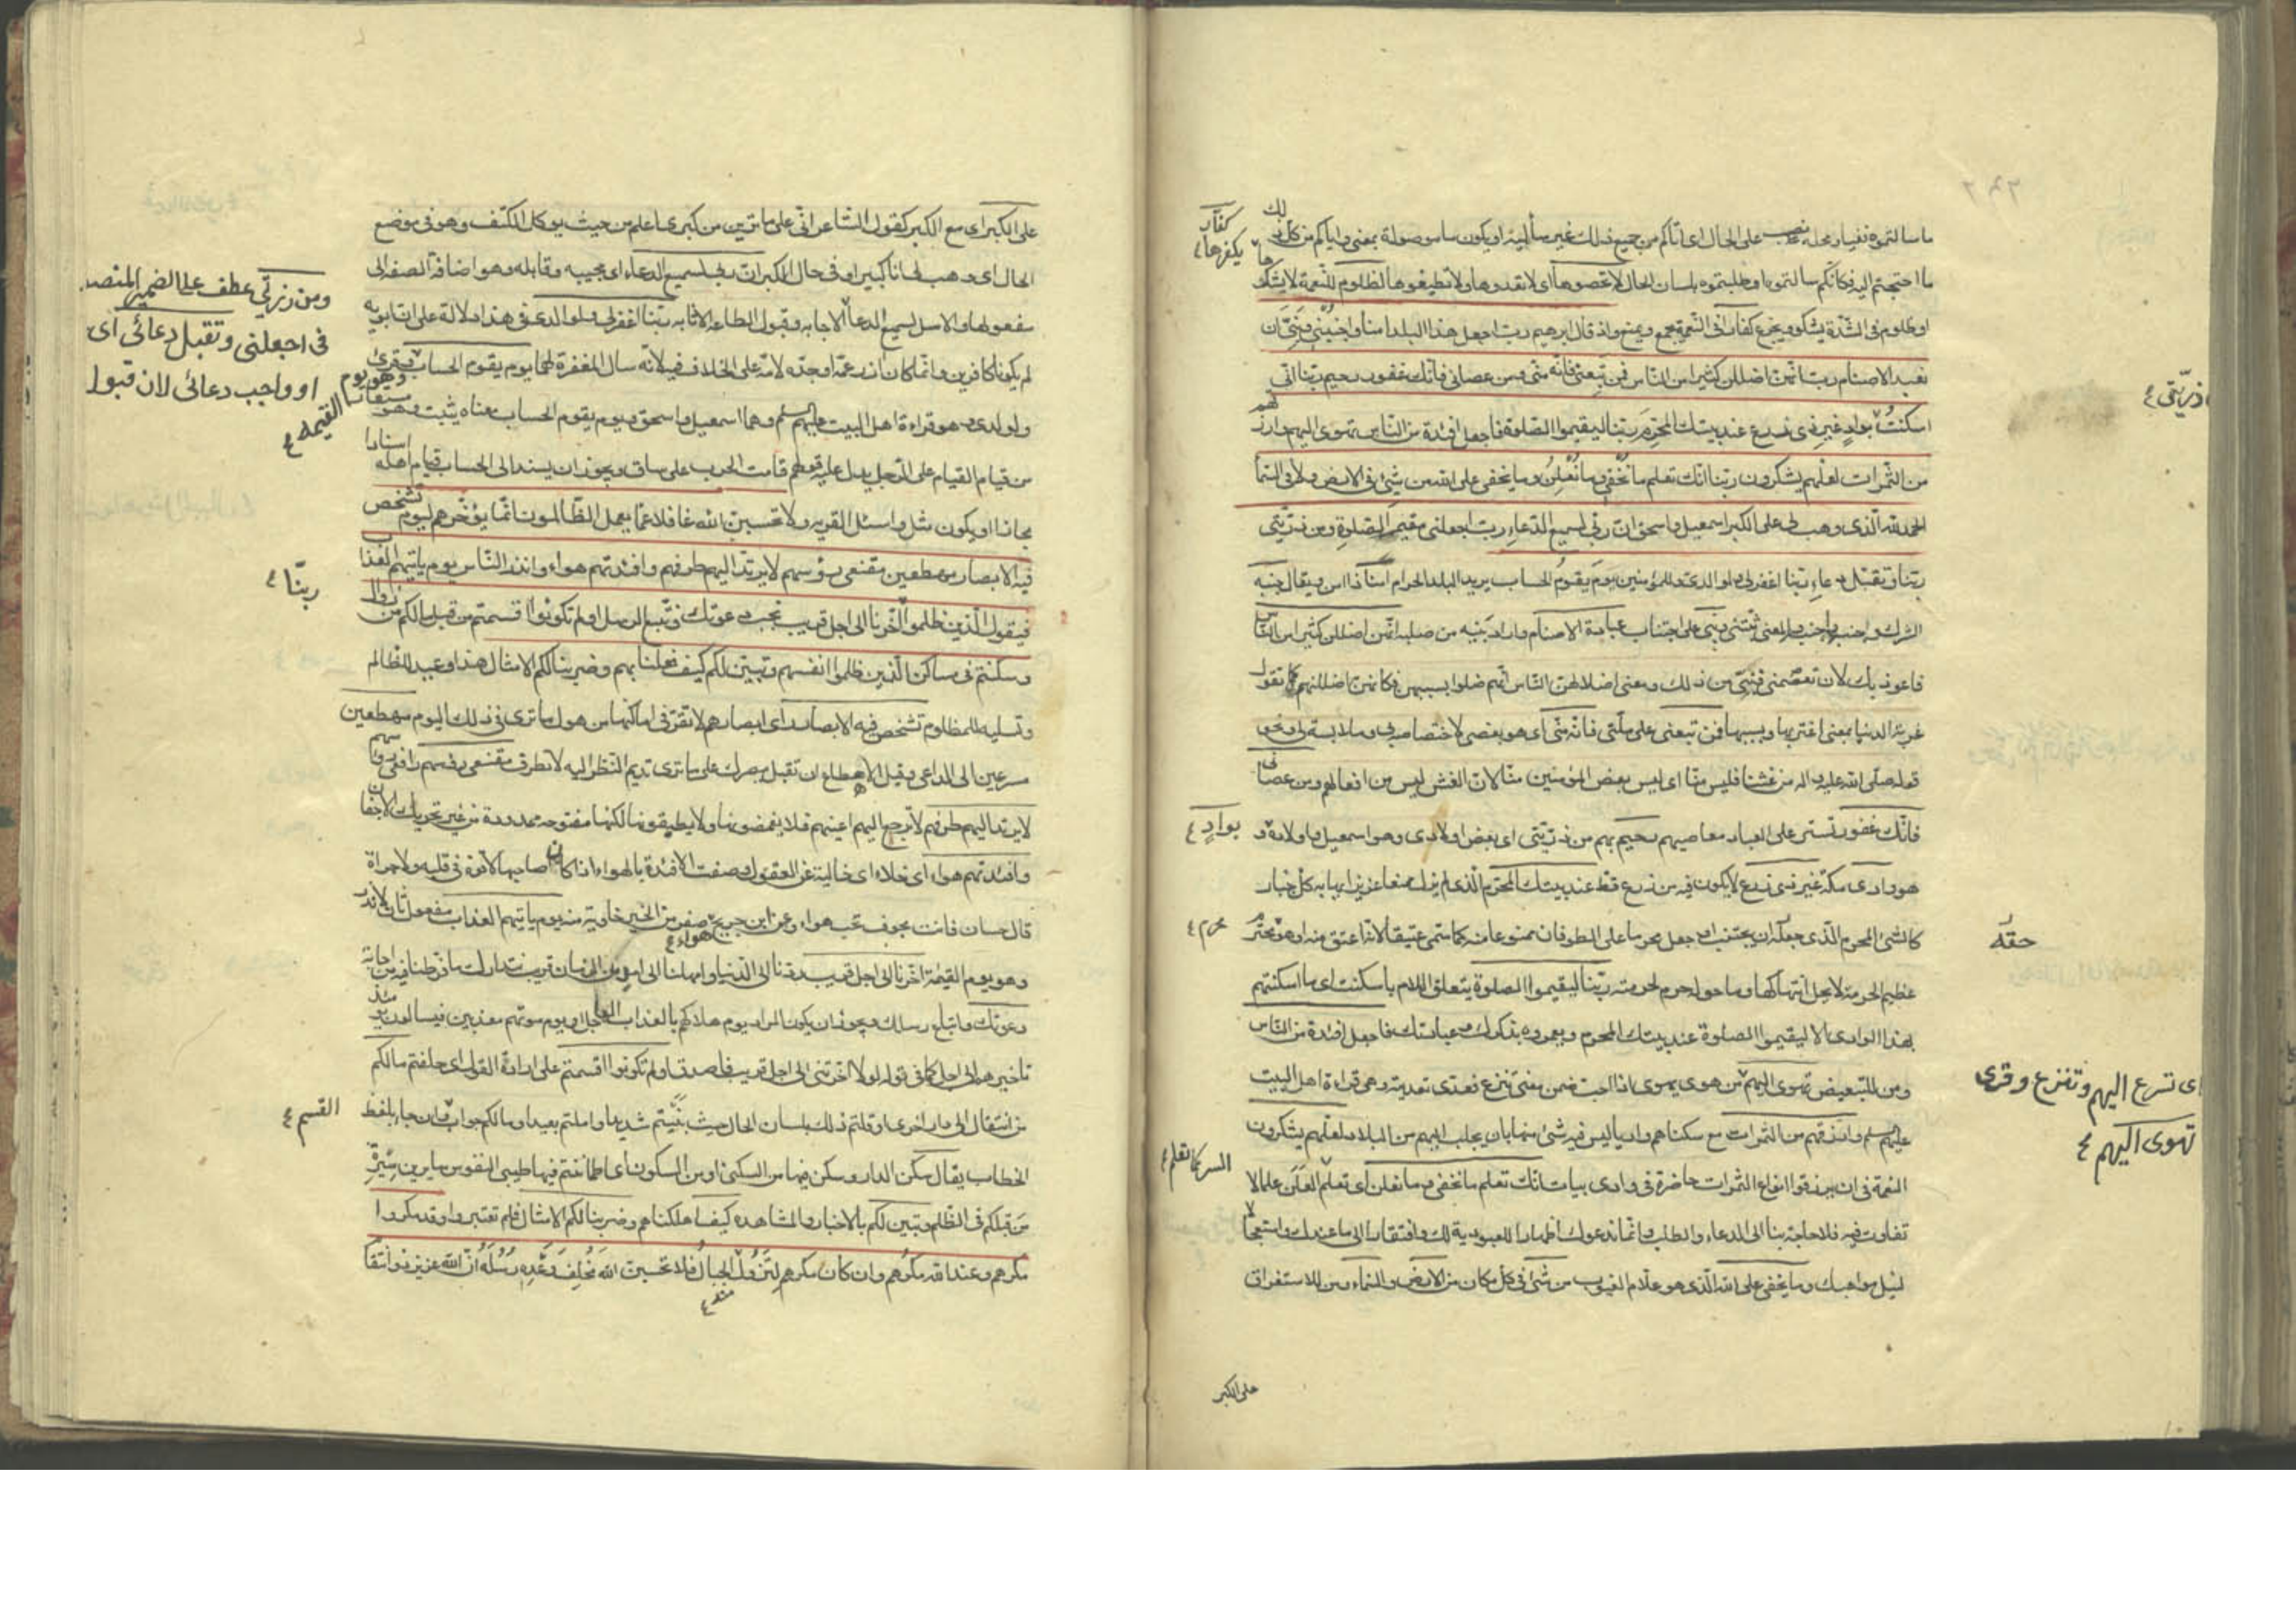 ما سالتموه نفيا ومحله نصب على الحال اى اتاكم من جميع ذلك غير سائليه او يكون ما موصولة بمعنى واتاكم من كل ذلك
ما احتجتم اليه فكانكم سالتموه او طلبتموه بلسان الحال لا تحصوها اى لا تعدوها ولا تطيقوها لظلوم للنعمة لا يشكرها
كفّار يكفرها
او ظلوم فى الشّدة يشكو ويجزع كفار فى النّعمة يجمع ويمنع واذ قال ابرهيم ربّ اجعل هذا البلد امنا واجنبنى وبنىّ ان
نعبد الاصنام ربّ انهنّ اضللن كثيرا من النّاس فمن تبعنى فانّه منّى ومن عصانى فانّك غفور رحيم ربّنا انّى
ذرّيتى
اسكنتُ بوادٍ غير ذى زرع عند بيتك المحرّم ربّنا ليقيموا الصّلوة فاجعل افئدة من النّاس تهوى اليهم وارزقهم
من الثّمرات لعلّهم يشكرون ربّنا انّك تعلم ما نُخفى وما نُعلِنُ وما يخفى على الله من شئ فى الارض ولا فى السّماء
الحمد لله الّذى وهب لى على الكبر اسمعيل واسحق انّ ربّى لسميع الدّعاءِ ربّ اجعلنى مقيمَ الصّلوة ومن ذرّيّتى
ربّنا وتقبّل دعاءِ ربّنا اغفر لى ولوالدىّ وللمؤمنين يومَ يقومُ الحساب يريد البلد الحرام امنا ذا امن ويقال جنبه
الشرك واجنبه والمعنى ثبّتنى وبنىّ على اجتناب عبادة الاصنام واراد بنيه من صلبه انّهنّ اضللن كثيرا من النّاس
فاعوذ بك لان تعصمنى وبنىّ من ذلك ومعنى اضلالهنّ النّاس انّهم ضلوا بسببهنّ فكانهنّ اضللنهم كما تقول
غرته الدنيا بمعنى اغتر بها وبسببها فمن تبعنى على ملّتى فانّه منّى اى هو بعضى لاختصاصه بى وملابسته لى ونحوه
قوله صلّى الله عليه واله من غشّنا فليس منّا اى ليس بعض المؤمنين منّا لان الغش ليس من افعالهم ومن عصانى
فانّك غفور تستر على العباد معاصيهم رحيم بهم من ذرّيّتى اى بعض اولادى وهو اسمعيل واولاده
بوادٍ
هو وادى مكّة غير ذى زرع لا يكون فيه من زرع قط عند بيتك المحرّم الّذى لم يزل ممنعا عزيزا يهابه كل جبار
كالشئ المحرم الّذى حقّه ان يجتنب او جعل محرما على الطوفان ممنوعا منه كما سمّى عتيقا لانّه اعتق منه او هو محترم
عظيم الحرمة لا يحل انتهاكها وما حوله حرم لحرمته ربّنا ليقيموا الصلوة يتعلق اللام باسكنت اى ما اسكنتهم
بهذا الوادى الا ليقيموا الصلوة عند بيتك المحرم ويعمروه بذكرك وعبادتك فاجعل افئدة من النّاس
ومن للتبعيض تهوى اليهم اى تسرع اليهم وتنزع وقرئ
تهوى اليهم
من هوى يهوى اذا احب ضمن معنى تنزع فعدى تعديته وهى قراءة اهل البيت
عليهم السلم وارزقهم من الثمرات مع سكناهم واديا ليس فيه شئ منها بان يجلب اليهم من البلاد لعلّهم يشكرون
النعمة فى ان يرزقوا انواع الثمرات حاضرة فى وادى يباب انّك تعلم ما نخفى وما نعلن اى تعلم السر كما تعلم العلن علما لا
تفاوت فيه فلا حاجة بنا الى الدعاء والطلب وانّما ندعوك اظهارا للعبودية لك وافتقارا الى ما عندك واستعجالا
لنيل مواهبك وما يخفى على الله الّذى هو علّام الغيوب من شئ فى كل مكان من الارض والسّماء ومن للاستغراق
على الكبر
على الكبر اى مع الكبر كقول الشّاعر انّى على ما ترين من كبرى اعلم من حيث يوكل الكتف وهو فى موضع
الحال اى وهب لى انا كبير او فى حال الكبر انّ ربّى لسميع الدعاء اى مجيبه وقابله وهو اضافة الصفة الى
مفعولها والاصل لسميع الدعاء
ومن ذريّتى عطف على الضمير المنصوب
فى اجعلنى وتقبل دعائى اى
او واجب دعائى لان قبول
الدعاء الاجابه وقبول الطاعة الاثابه ربّنا اغفر لى ولوالدىّ فى هذا دلالة على ان ابويه
لم يكونا كافرين وانّما كان ازر عمّه او جدّه لامّه على الخلاف فيه لانّه سال المغفرة لهما يوم يقوم الحساب وهو يوم القيمة وقرئ
ولولدى وهو قراءة اهل البيت عليهم السلم وهما اسمعيل واسحق ويوم يقوم الحساب معناه يثبت وهو مستعار
من قيام القيام على الرّجل يدل عليه قولهم قامت الحرب على ساق ويجوز ان يسند الى الحساب قيام اهله اسنادا
مجازا او يكون مثل واسئل القرية ولا تحسبنّ الله غافلا عمّا يعمل الظّالمون انّما يؤخّرهم ليوم تشخص
فيه الابصار مهطعين مقنعى رؤسهم لا يرتدّ اليهم طرفهم وافئدتهم هواء وانذر النّاس يوم ياتيهم العذاب
فيقول الّذين ظلموا ربّنا اخّرنا الى اجل قريب نجب دعوتك ونتّبع الرسل اولم تكونوا اقسمتم من قبل ما لكم من زوال
وسكنتم فى مساكن الّذين ظلموا انفسهم وتبيّن لكم كيف فعلنا بهم وضربنا لكم الامثال هذا وعيد للظالم
وتسلية للمظلوم تشخص فيه الابصار اى ابصارهم لا تقرّ فى اماكنها من هول ما ترى فى ذلك اليوم مهطعين
مسرعين الى الداعى وقيل الاهطاع ان تقبل ببصرك على ما ترى تديم النّظر اليه لا تطرف مقنعى رؤسهم رافعى رؤسهم
لا يرتد اليهم طرفهم لا يرجع اليهم اعينهم فلا يغمضونها ولا يطبقونها لكنها مفتوحة ممدودة من غير تحريك الاجفان
وافئدتهم هواء اى خلاء اى خالية عن العقول وصفت الافئدة بالهواء اذا كان صاحبها لا قوة فى قلبه ولا جراة
قال حسان فانت مجوف نخب هواء وعن ابن جريج هواء صفر من الخير خاوية منه يوم ياتيهم العذاب مفعول ثان لانذر
وهو يوم القيمة اخّرنا الى اجل قريب ردّنا الى الدّنيا وامهلنا الى امد من الزمان قريب نتدارك ما فرّطنا فيه من اجابة
دعوتك واتباع رسلك ويجوز ان يكون المراد يوم هلاكهم بالعذاب العاجل او يوم موتهم معذبين فيسالون يومئذ
تاخيرهم الى اجل كما فى قوله لولا اخّرتنى الى اجل قريب فاصدق اولم تكونوا اقسمتم على ارادة القول اى حلفتم ما لكم
من انتقال الى دار اخرى او قلتم ذلك بلسان الحال حيث بنيتم شديدا واملتم بعيدا وما لكم جواب القسم وان جاء بلفظ
الخطاب يقال سكن الدار وسكن فيها من السكنى او من السكون اى اطماننتم فيها طيبى النفوس سايرين سيرة
من قبلكم فى الظّلم وتبين لكم بالاخبار والمشاهده كيف اهلكناهم وضربنا لكم الامثال فلم تعتبروا وقد مكروا
مكرهم وعند الله مكرُهم وان كان مكرهم لِتَزولَ منه الجبالُ فلا تحسبنّ الله مُخلِفَ وَعْدِه رُسُلَهُ انّ الله عزيز ذو انتقام